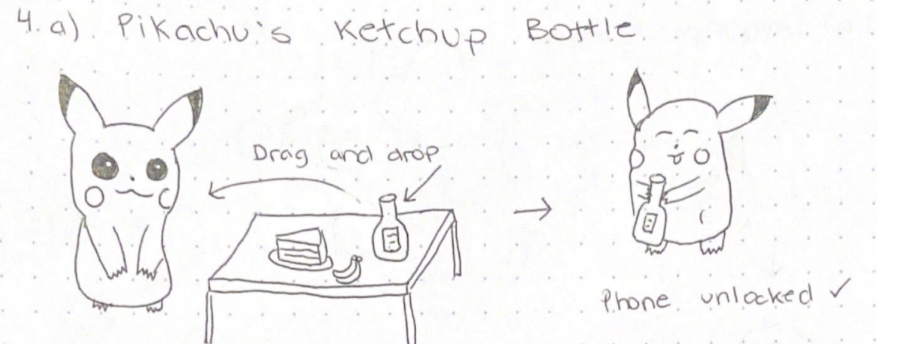 4. a) Pikachu's Ketchup Bottle
Drag and drop
Phone unlocked ✓